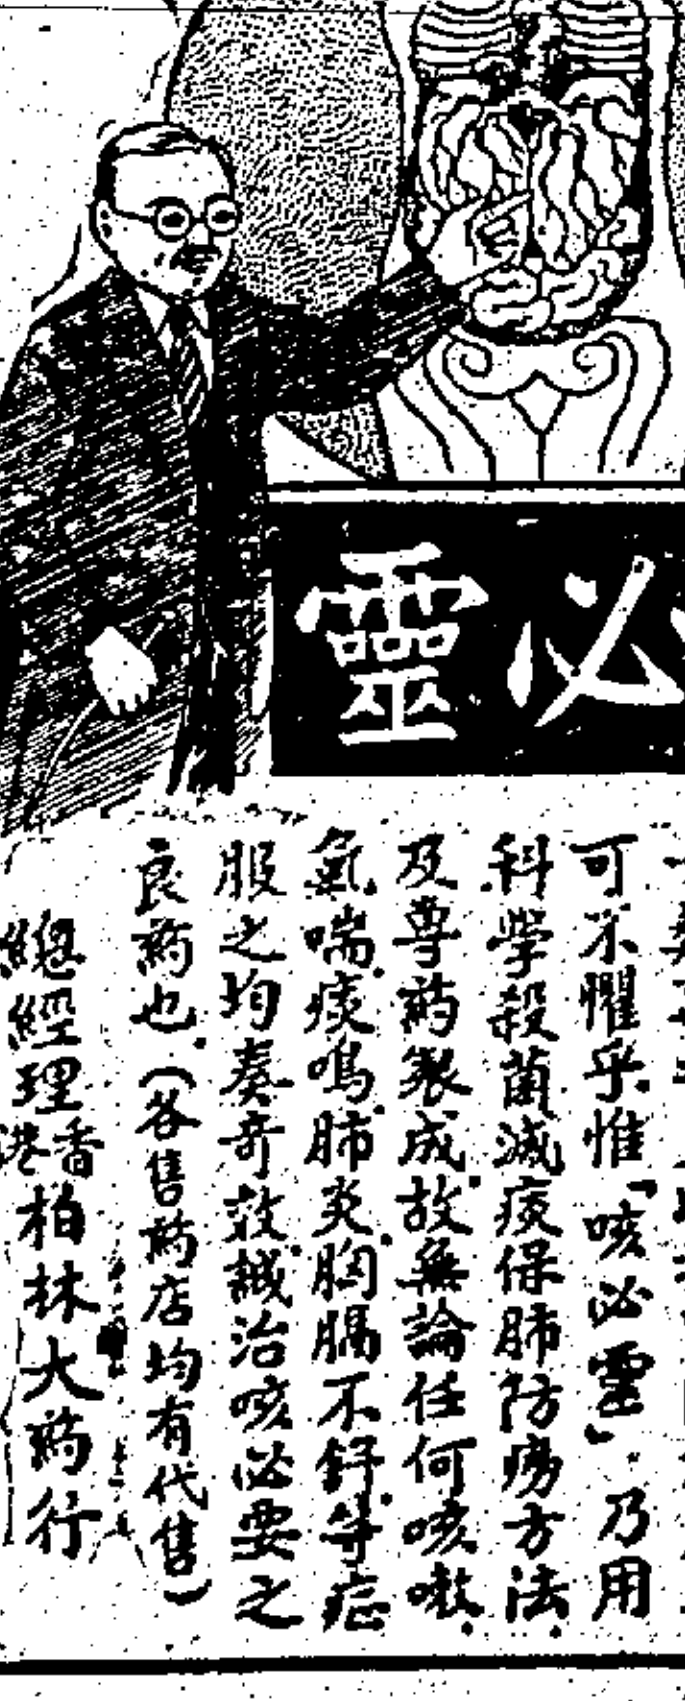 必靈
可不懼乎惟「咳必靈」乃用
科學殺菌滅痰保肺防癆方法
及尊药製成故無論任何咳嗽
氣喘痰鳴肺炎胸膈不舒等症
服之均奏奇效誠治咳必要之
良药也(各售药店均有代售)
總經理香港柏林大药行